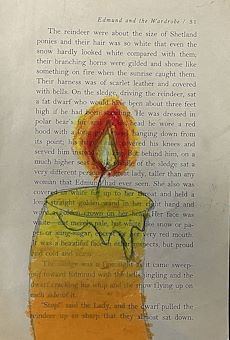 Edmund and the Wardrobe / 51
The reindeer were about the size of Shetland
ponies and their hair was so white that even the
snow hardly looked white compared with them;
their branching horns were gilded and shone like
something on fire when the sunrise caught them.
Their harness was of scarlet leather and covered
with bells. On the sledge, driving the reindeer, sat
a fat dwarf who been about three feet
high if he had was dressed in
polar bear's he wore a red
hood with a hanging down from
its point; his covered his knees and
served him behind him, on a
much higher sea of the sledge sat a
very different person lady, taller than any
woman that Edmund had ever seen. She also was
covered in white fur up to her throat and held
long straight golden wand in her right hand and
wore golden crown on her head. Her face was
white not merely pale, but white like snow or pa-
or icing-sugar, very red mouth.
was a beautiful face respects, but proud
and cold and stern.
The sledge was a came sweep-
ing toward Edmund with the bells jingling and the
dwarf cracking his whip and the snow flying up on
each side of it.
"Stop!" said the Lady, and the dwarf pulled the
reindeer up so sharp that they almost sat down.